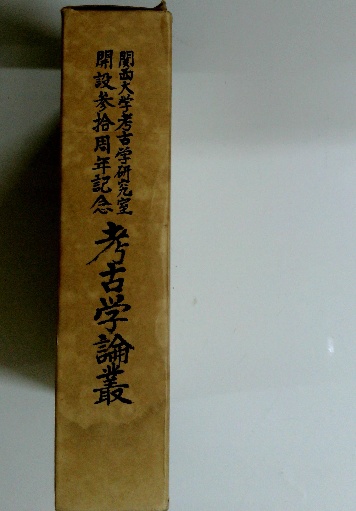 関西大学考古学研究室
開設参拾周年記念
考古学論叢